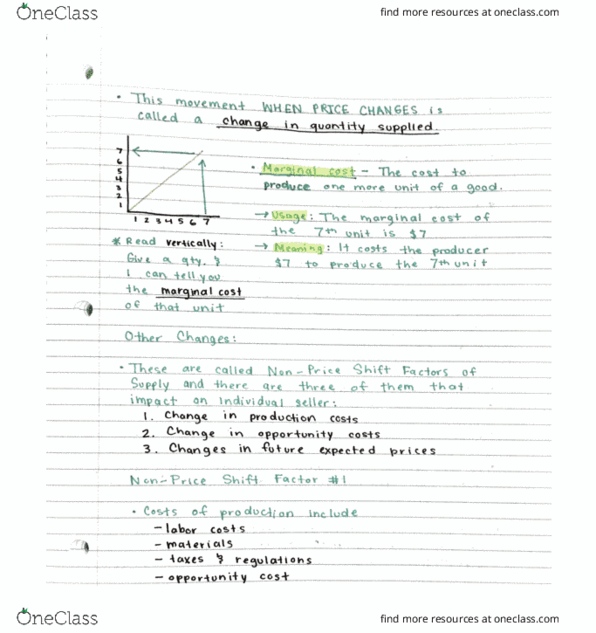 OneClass
find more resources at oneclass.com
• This movement WHEN PRICE CHANGES is
called a change in quantity supplied.
7
6
5
4
3
2
1
1 2 3 4 5 6 7
• Marginal cost - The cost to
produce one more unit of a good.
→ Usage: The marginal cost of
the 7th unit is $7
→ Meaning: It costs the producer
$7 to produce the 7th unit
* Read vertically:
Give a qty. &
I can tell you
the marginal cost
of that unit
Other Changes:
• These are called Non-Price Shift Factors of
Supply and there are three of them that
impact an individual seller:
1. Change in production costs
2. Change in opportunity costs
3. Changes in future expected prices
Non-Price Shift Factor #1
• Costs of production include
- labor costs
- materials
- taxes & regulations
- opportunity cost
OneClass
find more resources at oneclass.com